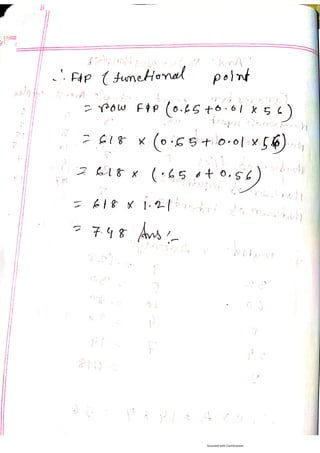 ∴ FAP (functional point
= row FAP (0.65 + 0.01 x 56)
= 618 x (0.65 + 0.01 x 56)
= 618 x (.65 + 0.56)
= 618 x 1.21
= 748 Ans :-
Scanned with CamScanner